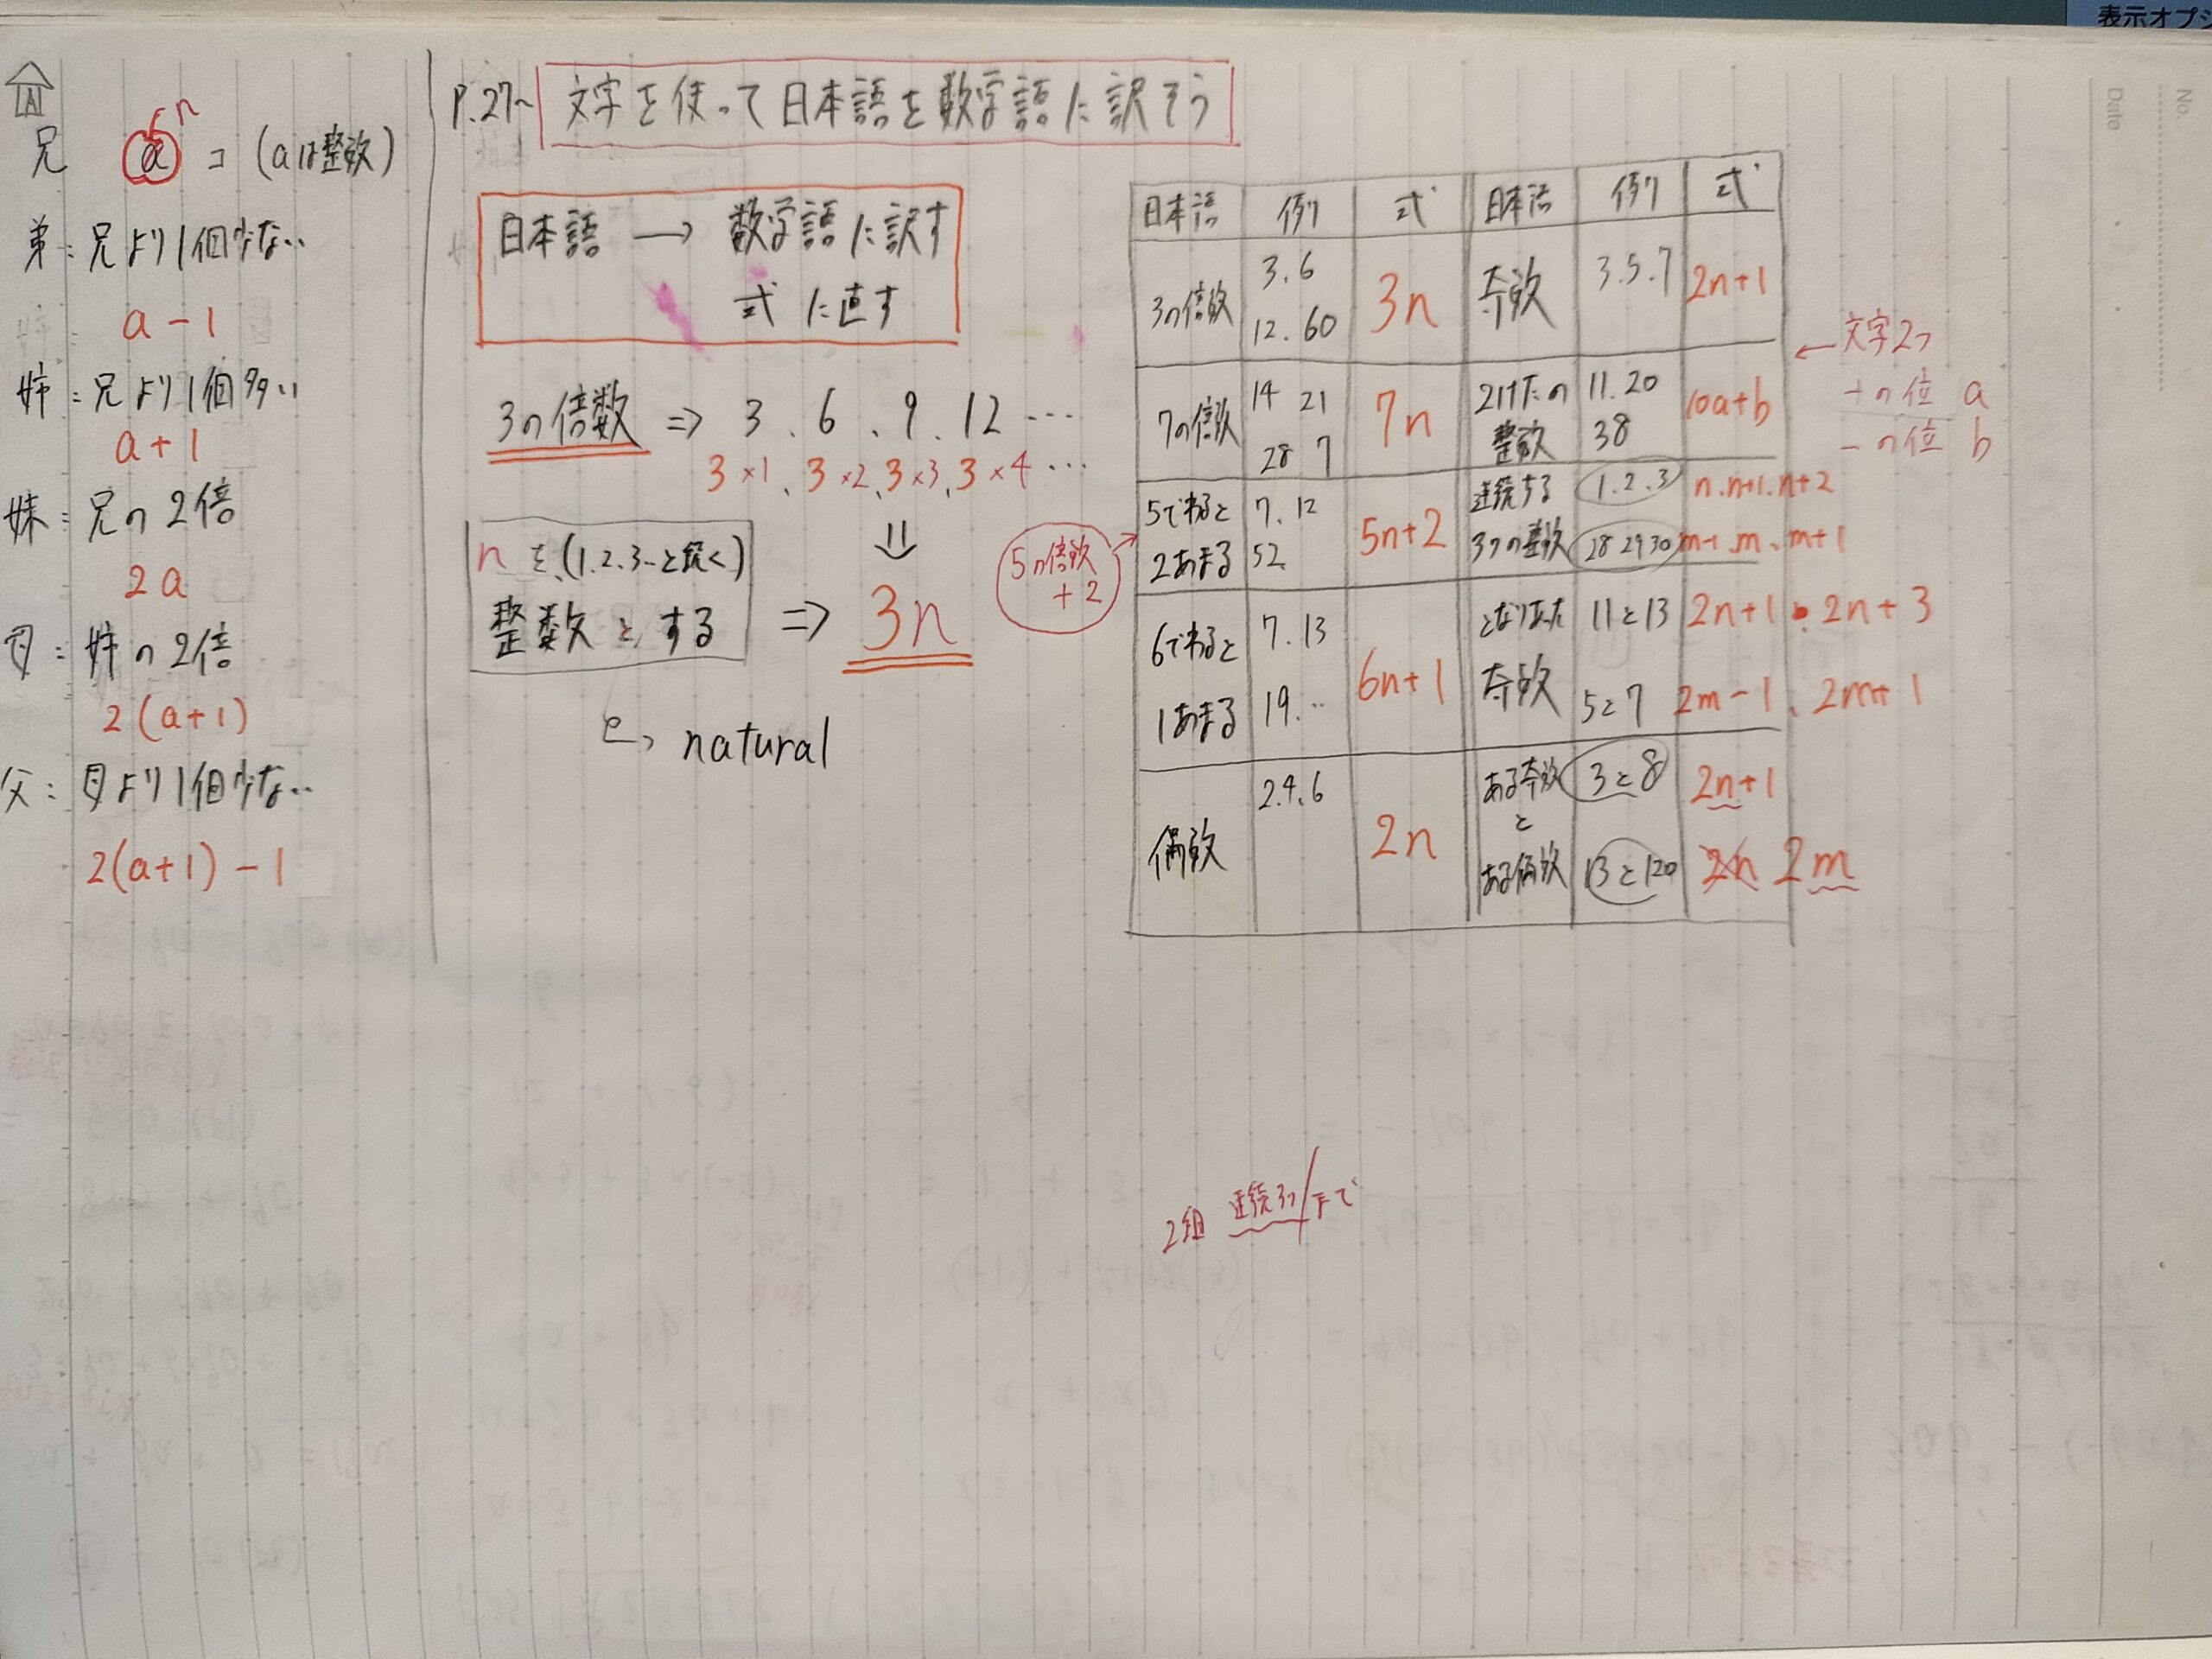 表示オプシ
No.
Date
A
兄 a コ (aは整数)
n
弟:兄より1個少ない
a-1
姉:兄より1個多い
a+1
妹:兄の2倍
2a
母:姉の2倍
2(a+1)
父:母より1個少ない
2(a+1)-1
P.27~ 文字を使って日本語を数学語に訳そう
日本語 → 数学語に訳す
式に直す
3の倍数 ⇒ 3、6、9、12…
3×1、3×2、3×3、3×4…
⇓
nを(1.2.3…と続く)
整数とする ⇒ 3n
natural
日本語 例 式 日本語 例 式
3の倍数 3.6 12.60 3n 奇数 3.5.7 2n+1
7の倍数 14 21 28 7 7n 2けたの整数 11.20 38 10a+b
←文字2つ
十の位 a
一の位 b
5の倍数
+2
5でわると2あまる 7.12 52 5n+2 連続する3つの整数 1.2.3 n.n+1.n+2
28 29 30 m-1.m、m+1
6でわると1あまる 7.13 19… 6n+1 となりあった奇数 11と13 2n+1、2n+3
5と7 2m-1、2m+1
偶数 2.4.6 2n ある奇数とある偶数 3と8 2n+1
13と120 2n 2m
2組 連続3つ/まで